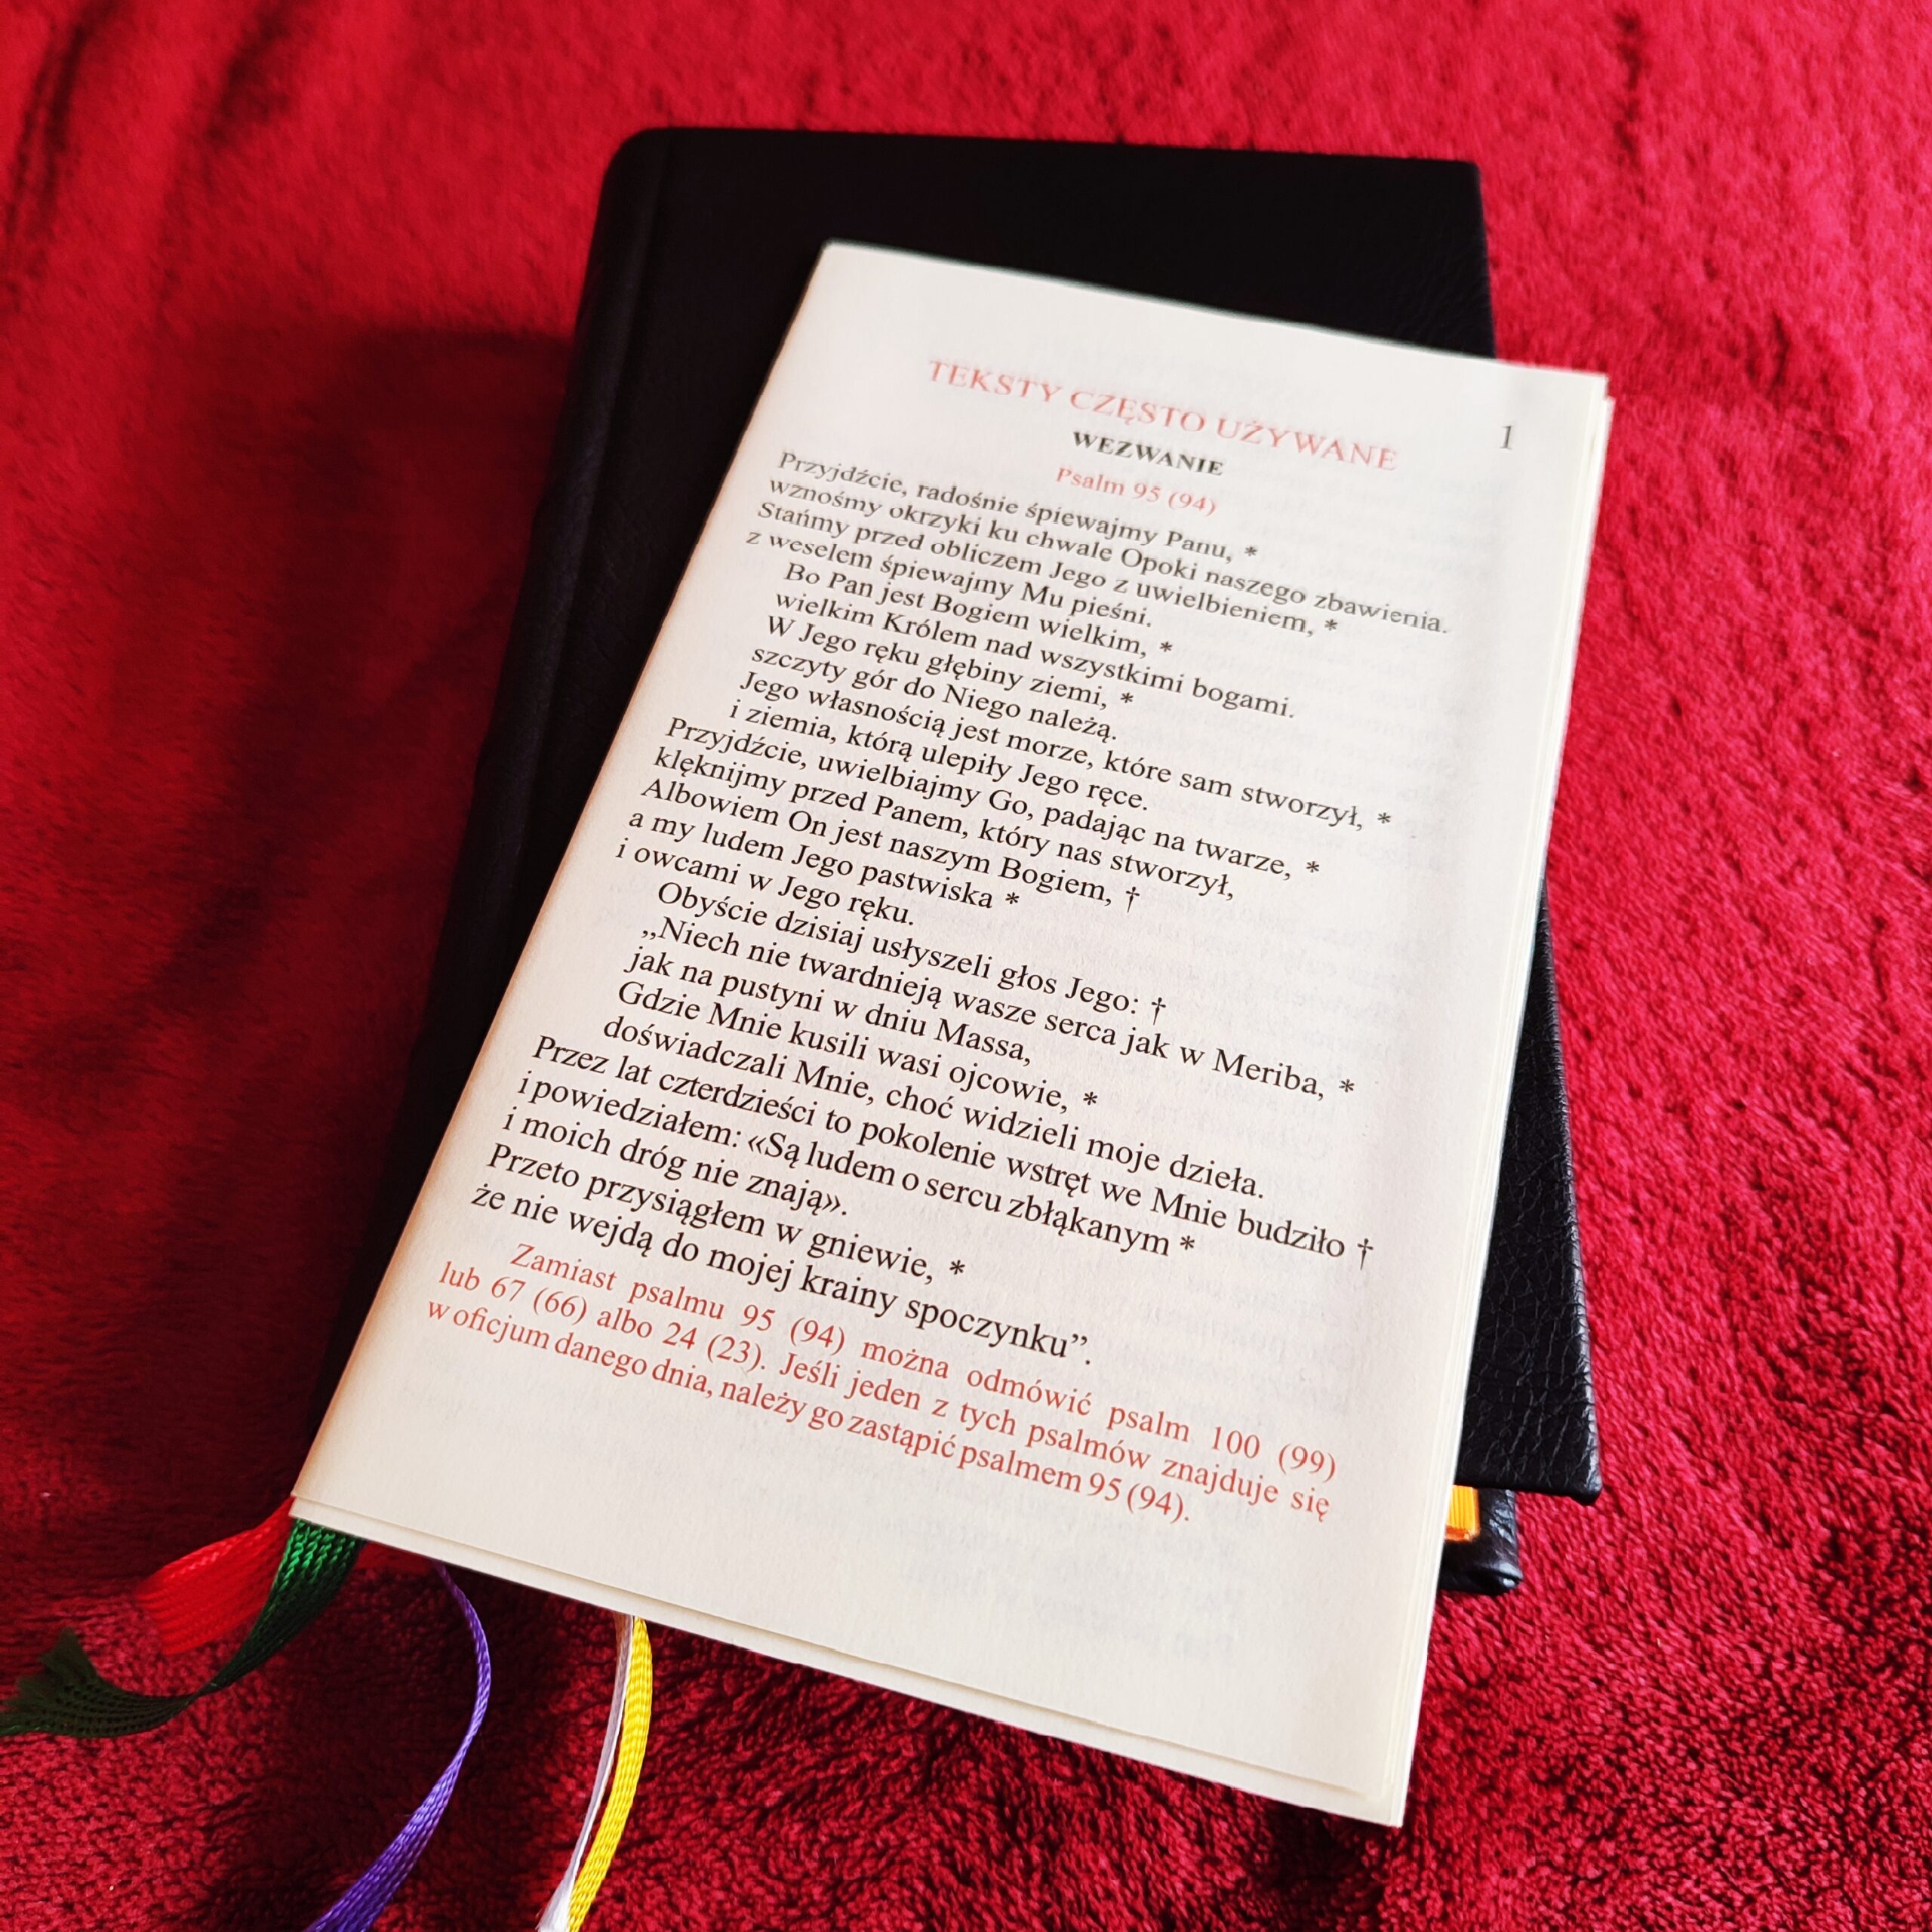 TEKSTY CZĘSTO UŻYWANE
1
WEZWANIE
Psalm 95 (94)
Przyjdźcie, radośnie śpiewajmy Panu, *
wznośmy okrzyki ku chwale Opoki naszego zbawienia.
Stańmy przed obliczem Jego z uwielbieniem, *
z weselem śpiewajmy Mu pieśni.
Bo Pan jest Bogiem wielkim, *
wielkim Królem nad wszystkimi bogami.
W Jego ręku głębiny ziemi, *
szczyty gór do Niego należą.
Jego własnością jest morze, które sam stworzył, *
i ziemia, którą ulepiły Jego ręce.
Przyjdźcie, uwielbiajmy Go, padając na twarze, *
klęknijmy przed Panem, który nas stworzył,
Albowiem On jest naszym Bogiem, †
a my ludem Jego pastwiska *
i owcami w Jego ręku.
Obyście dzisiaj usłyszeli głos Jego: †
„Niech nie twardnieją wasze serca jak w Meriba, *
jak na pustyni w dniu Massa,
Gdzie Mnie kusili wasi ojcowie, *
doświadczali Mnie, choć widzieli moje dzieła.
Przez lat czterdzieści to pokolenie wstręt we Mnie budziło †
i powiedziałem: «Są ludem o sercu zbłąkanym *
i moich dróg nie znają».
Przeto przysiągłem w gniewie, *
że nie wejdą do mojej krainy spoczynku”.
Zamiast psalmu 95 (94) można odmówić psalm 100 (99)
lub 67 (66) albo 24 (23). Jeśli jeden z tych psalmów znajduje się
w oficjum danego dnia, należy go zastąpić psalmem 95 (94).